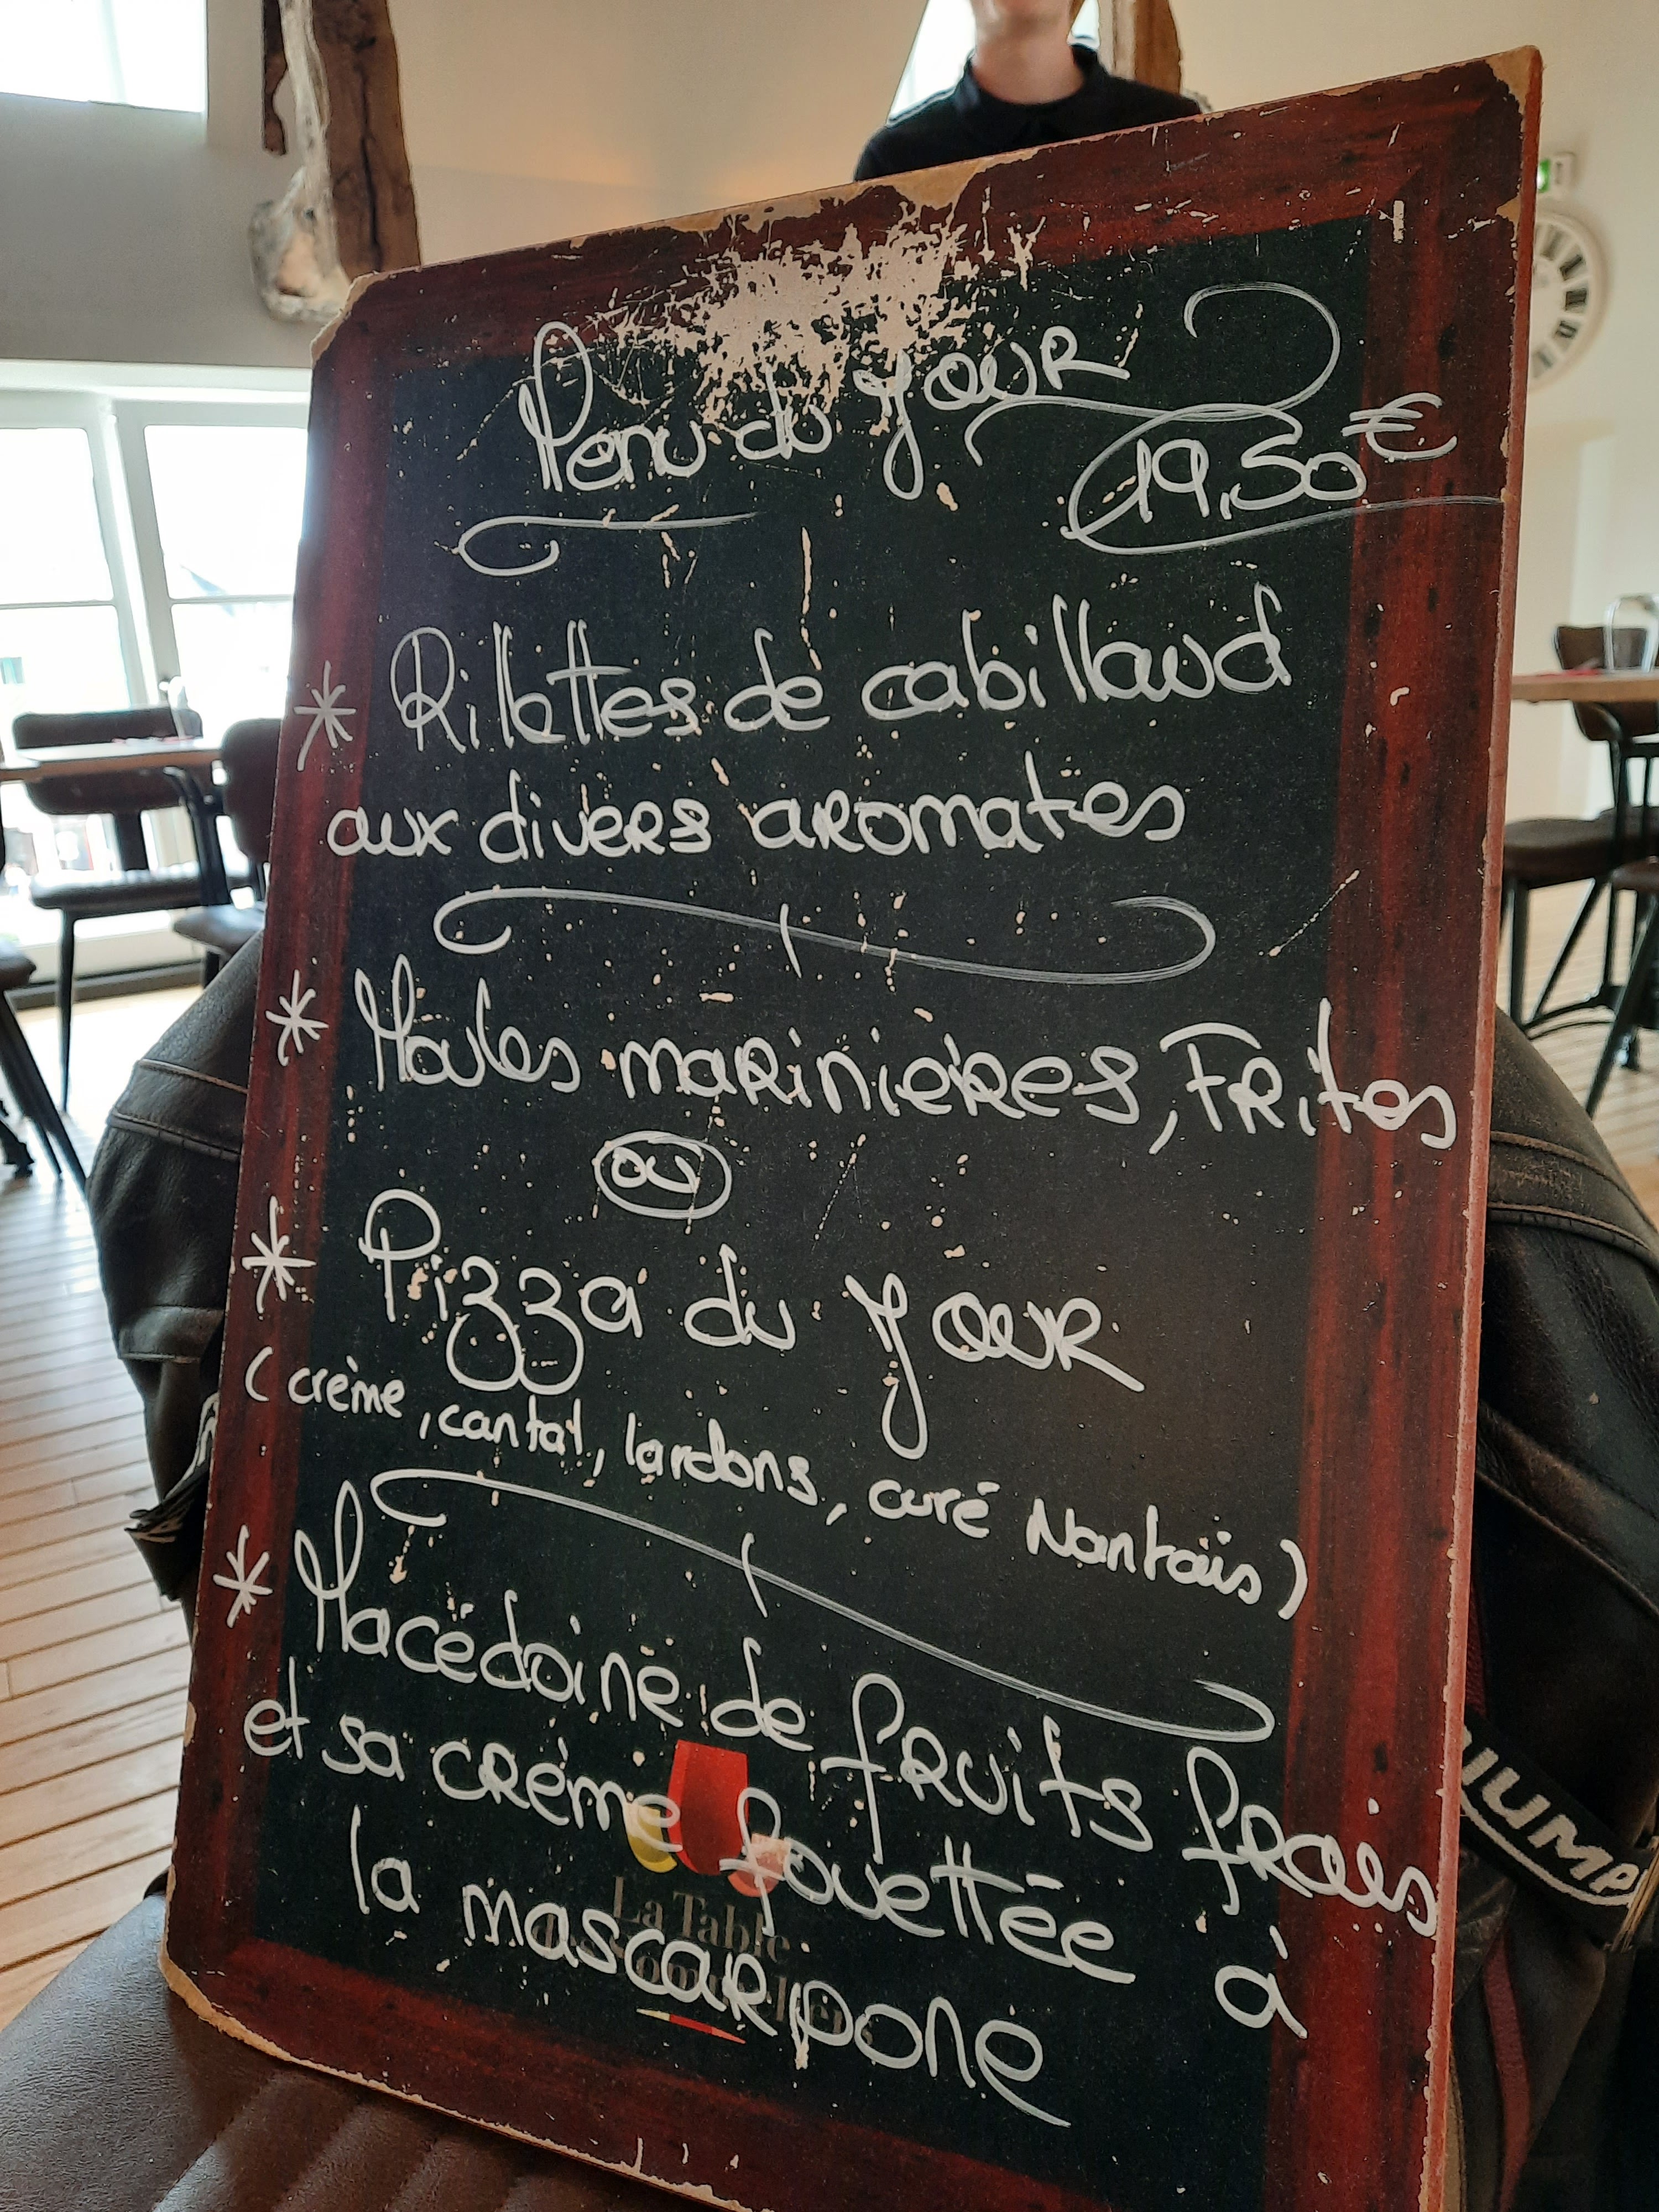 Menu du Jour
19,50€
* Rillettes de cabillaud
aux divers aromates
* Moules marinières, Frites
ou
* Pizza du Jour
(crème, cantal, lardons, curé Nantais)
* Macédoine de fruits frais
et sa crème fouettée à
la mascarpone
La Table